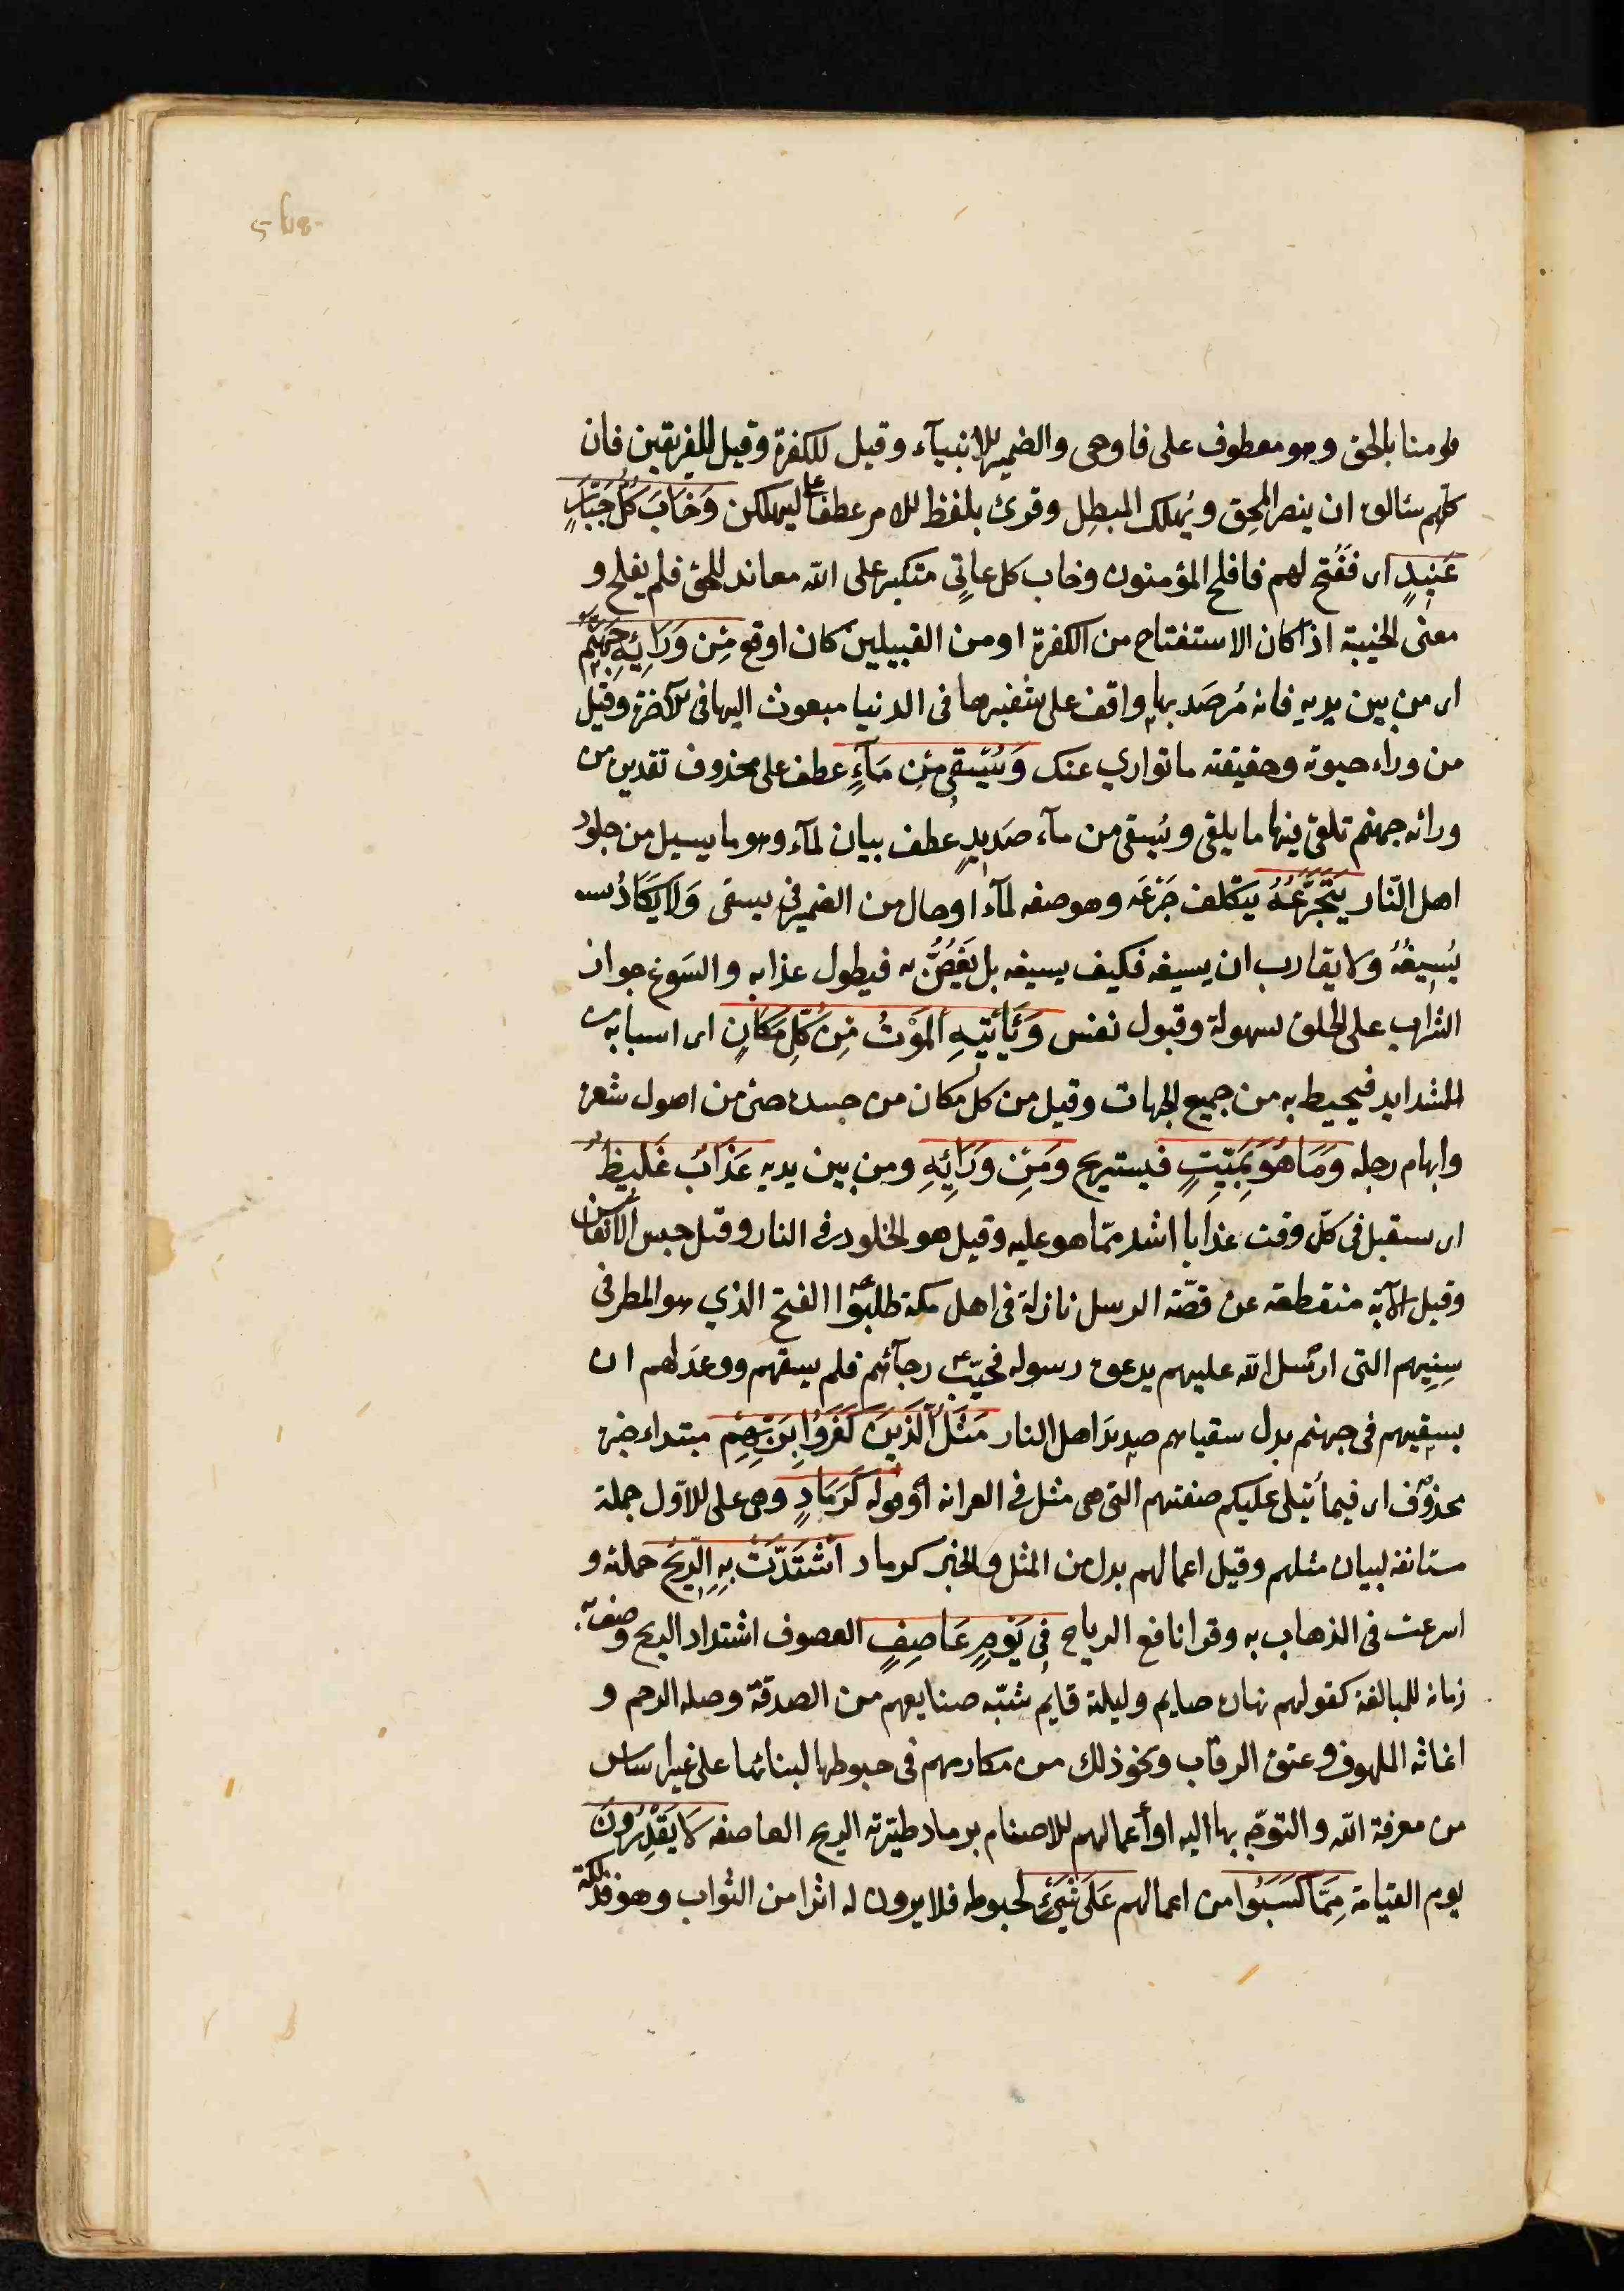 قومنا بالحق وهو معطوف على فاوحى والضمير للانبيآء وقيل للكفرة وقيل للفريقين فان
كلهم سئالوه ان ينصر المحِق ويُهلك المبطِل وقرئ بلفظ الامر عطفا على ليهلكن وَخَابَ كُلُّ جَبَّارٍ
عَنِيدٍ اى ففُتح لهم فافلح المؤمنون وخاب كل عاتٍي متكبر على الله معاند للحق فلم يفلح و
معنى الخيبة اذا كان الاستفتاح من الكفرة او من القبيلين كان اوقع مِن وَرَائِهِ جَهَنَّمُ
اى من بين يديه فانه مُرصَد بها واقف على شفيرها فى الدنيا مبعوث اليها فى الآخرة وقيل
من وراء حيوته وحقيقته ما توارى عنك وَيُسْقَى مِن مَآءٍ عطف على محذوف تقديره من
ورائه جهنم تلقى فيها ما يلقى ويُسقى من مآء صَدِيدٍ عطف بيان لمآء وهو ما يسيل من جلود
اهل النّار يَتَجَرَّعُهُ يتكلف جَرْعَه وهو صفه لمآء او حال من الضمير فى يسقى وَلَا يَكَادُ
يُسِيغُهُ ولا يقارب ان يسيغه فكيف يسيغه بل يَغُصُّ به فيطول عذابه والسَوغ جواز
الشراب على الحلق لسهولة وقبول نفس وَيَأْتِيهِ الْمَوْتُ مِن كُلِّ مَكَانٍ اى اسبابه من
الشدايد فيحيط به من جميع الجهات وقيل من كل مكان من جسده حتى من اصول شعره
وابهام رجله وَمَا هُوَ بِمَيِّتٍ فيستريح وَمِن وَرَائِهِ ومن بين يديه عَذَابٌ غَلِيظٌ
اى يستقبل فى كلّ وقت عذابا اشد ممّا هو عليه وقيل هو الخلود فى النار وقيل حبس الانفاس
وقيل الآية منقطعه عن قصّة الرسل نازلة فى اهل مكة طلبوا الفتح الذي هو المطر فى
سِنِيهم التى ارسل الله عليهم بدعوة رسوله فخيّب رجآئهم فلم يسقهم ووعَد لهم ان
يسقيهم فى جهنم بدل سقياهم صديدَ اهل النار مَثَلُ الَّذِينَ كَفَرُوا بِرَبِّهِمْ مبتداء خبره
محذوف اى فيما يُتلى عليكم صفتهم التى هى مثل فى الغرابه او قوله كَرَمَادٍ وهى على الاوّل جملة
مستانفة لبيان مثلهم وقيل اعمالهم بدل من المثل والخبر كرماد اشْتَدَّتْ بِهِ الرِّيحُ حملته و
اسرعت فى الذهاب به وقرا نافع الرياح فِى يَوْمٍ عَاصِفٍ العصوف اشتداد الريح وصف به
زمانه للمبالغة كقولهم نهاره صايم وليلة قايم شبّه صنايعهم من الصدقة وصله الرحم و
اغاثه الملهوف وعتق الرقاب ونحو ذلك من مكارمهم فى حبوطها لبنائها على غير اساس
من معرفة الله والتوجّه بها اليه او أعمالهم للاصنام برماد طيّرته الريح العاصفه لَا يَقْدِرُونَ
يوم القيامة مِمَّا كَسَبُوا من اعمالهم عَلَى شَيْءٍ لحبوطه فلا يرون له اثرا من الثواب وهو فذلكة